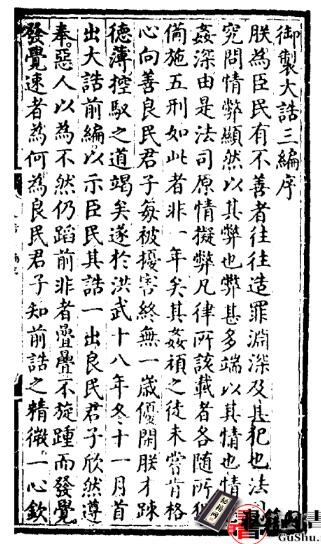 御製大誥三編序
朕為臣民有不善者往往造罪淵深及其犯也法
究問情弊顯然以其弊也弊甚多端以其情也情
姦深由是法司原情擬弊凡律所該載者各隨所
備施五刑如此者非一年矣其姦頑之徒未嘗肯格
心向善良民君子每被擾害終無一歲優閑朕才踈
德薄控馭之道竭矣遂於洪武十八年冬十一月首
出大誥前編以示臣民其誥一出良民君子欣然遵
奉惡人以為不然仍蹈前非者疊疊不旋踵而發覺
發覺速者為何為良民君子知前誥之精微一心欽
GuShu.